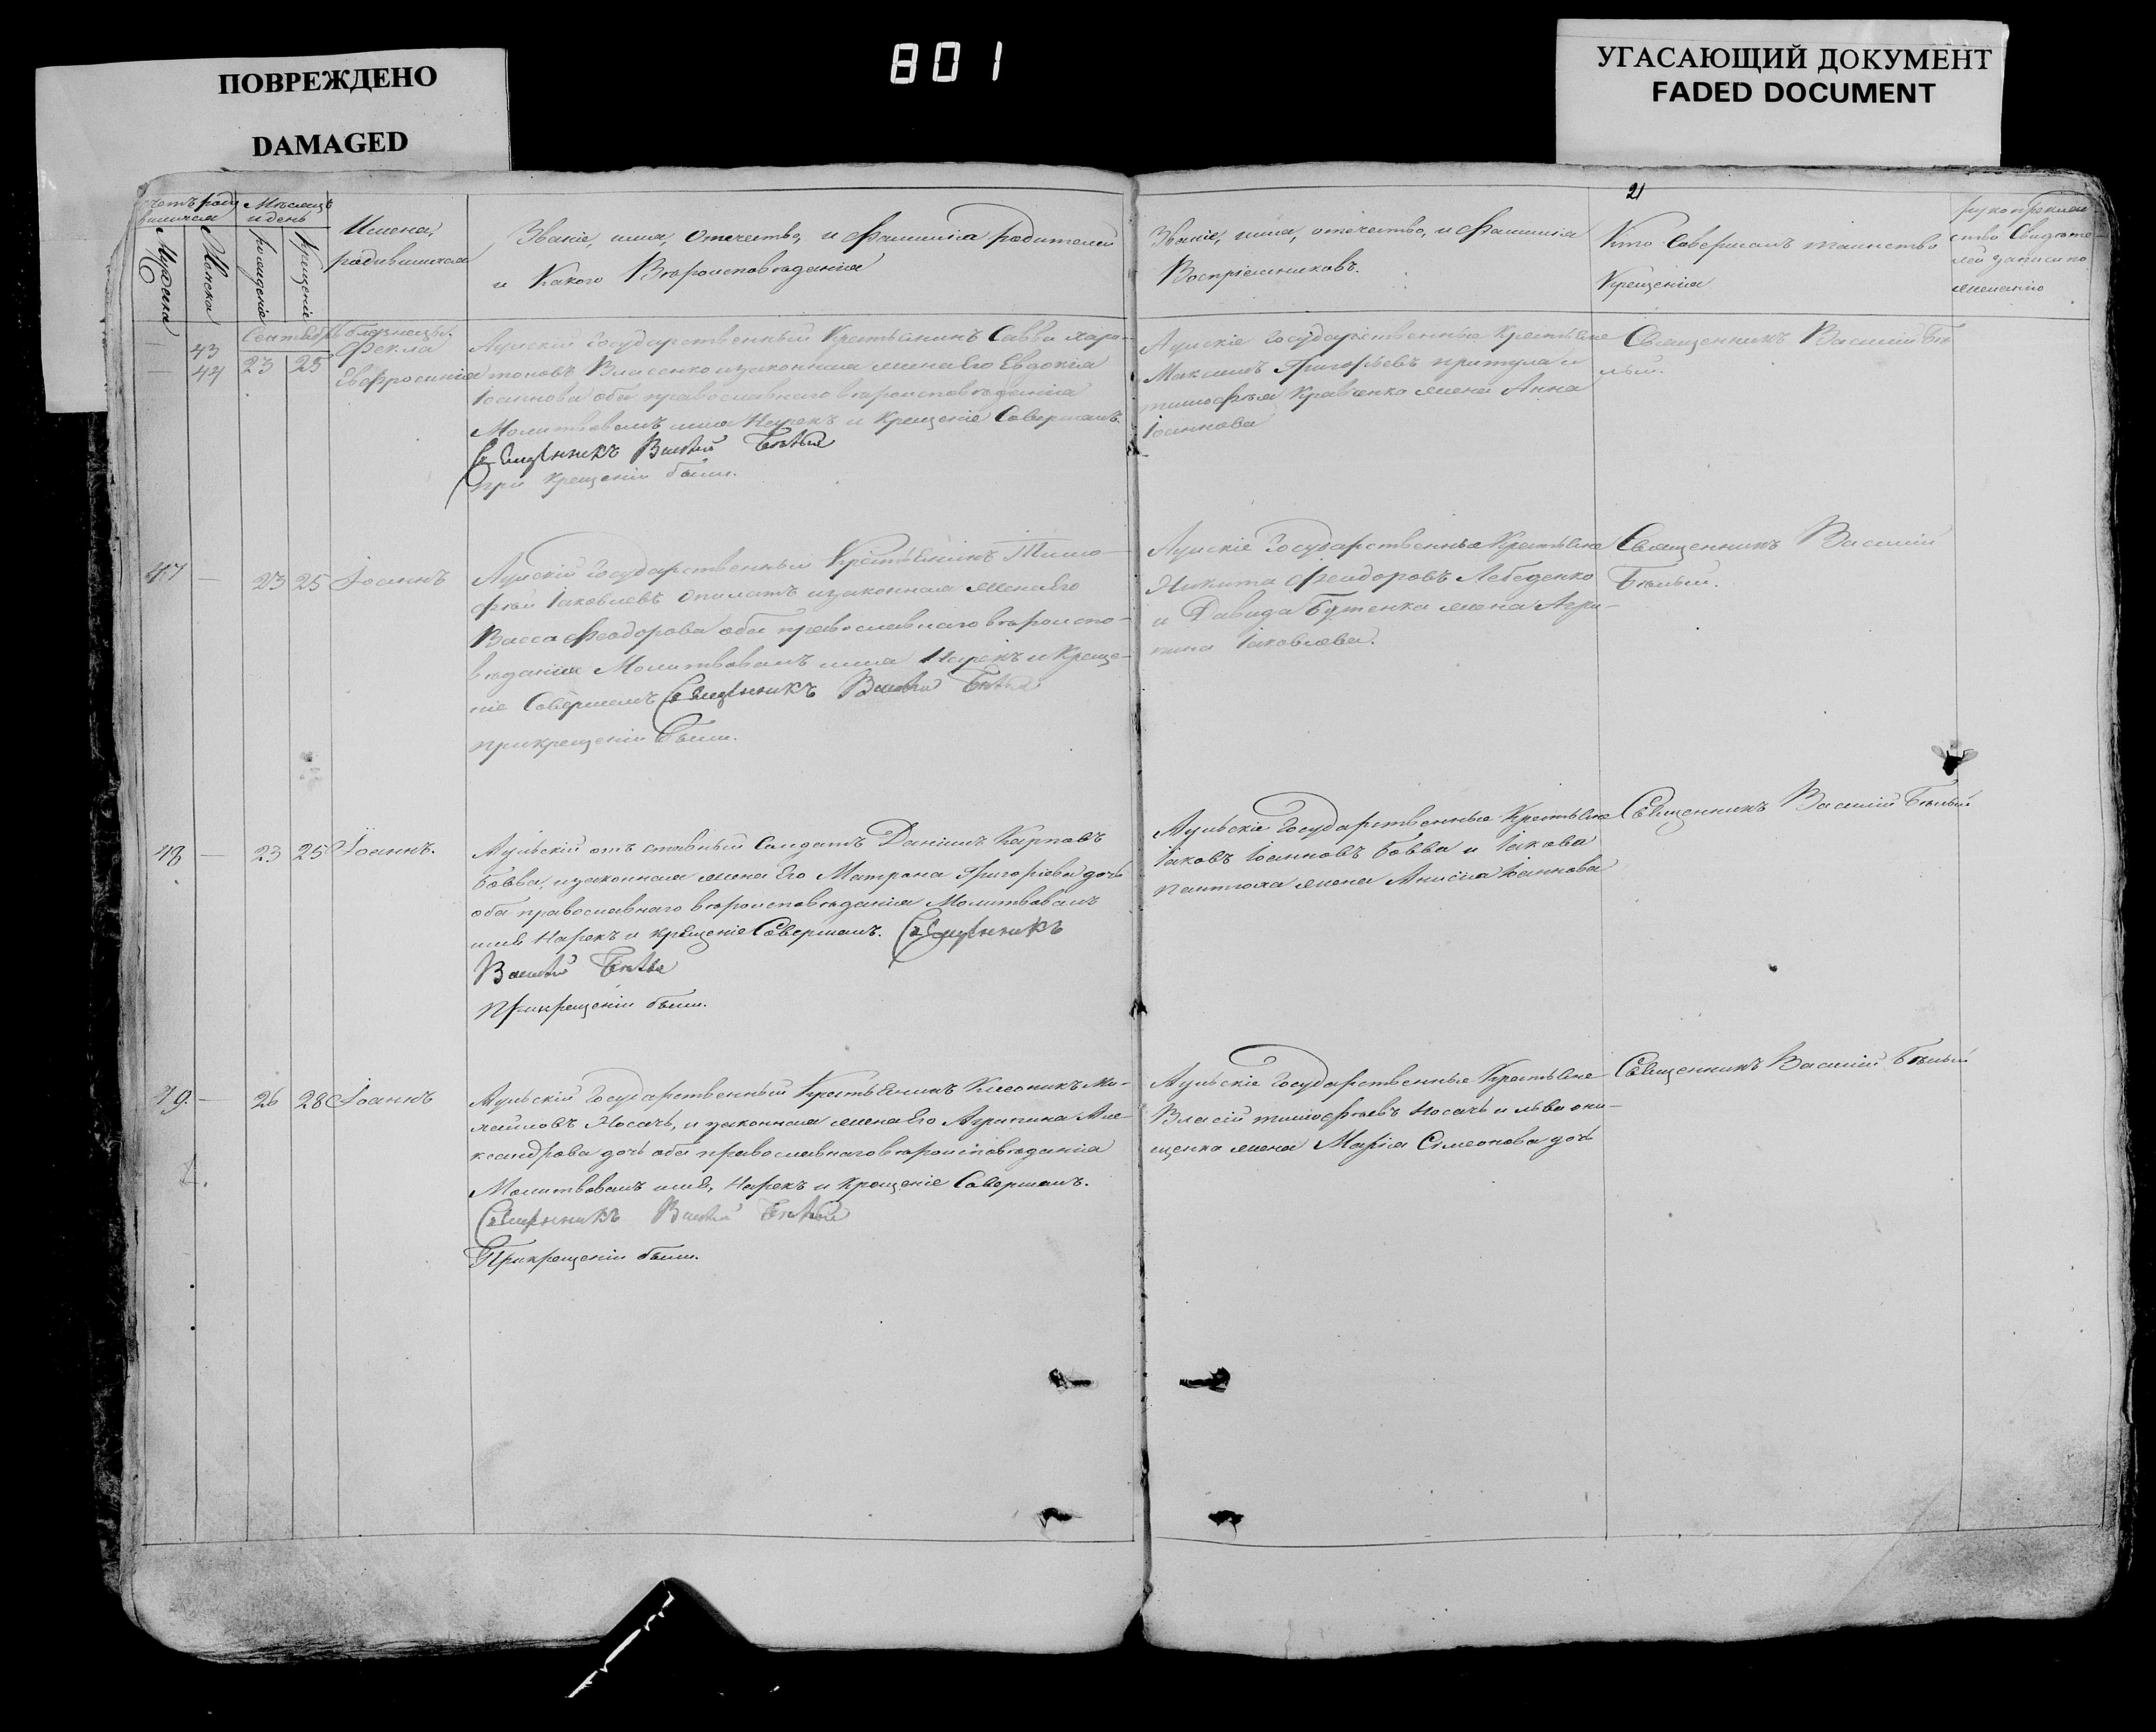 801
ПОВРЕЖДЕНО
DAMAGED
УГАСАЮЩИЙ ДОКУМЕНТ
FADED DOCUMENT
21
Мѣсяцъ
и день
Мужеска
Женска
рожденіе
Крещеніе
Имена,
родившихся
Званіе, имя, Отчество, и Фамилія родителей
и Какого Вѣроисповѣданія
Званіе, имя, отчество, и Фамилія
Воспріемниковъ.
Кто Совершалъ таинство
Крещенія
рукоприклад
ство Свидѣте-
лей записи по
желанію
Сентябрь близнецы
43
44
23 25
Фекла
Евфросинія
Государственный Крестьянинъ Савва Хари-
тоновъ Власенко и законная жена Его Евдокія
Іоаннова оба православнаго вѣроисповѣданія
Молитвовалъ имя Нарекъ и Крещеніе Совершалъ
Священникъ Василій Бѣлый
При Крещеніи были.
Государственные Крестьяне
Максимъ Григорьевъ притула и
тимофѣя Кравченко жена Анна
Іоаннова
Священникъ Василій Бѣ
лый.
47 — 23 25 Іоаннъ
Государственный Крестьянинъ Тимо-
фѣй Іаковлевъ Опилатъ и законная жена Его
Васса Феодорова оба православнаго вѣроиспо-
вѣданія Молитвовалъ имя Нарекъ и Креще-
ніе Совершалъ Священникъ Василій Бѣлый
при крещеніи были.
Государственные Крестьяне
Никита Феодоровъ Лебеденко
и Давида Бутенка жена Агри-
пина Іаковлева.
Священникъ Василій
Бѣлый.
48 — 23 25 Іоаннъ.
отъ ставный Солдатъ Даніилъ Карповъ
Бовва, и законная жена Его Матрона Григоріева дочь
оба православнаго вѣроисповѣданія Молитвовалъ
имя Нарекъ и крещеніе Совершалъ. Священникъ
Василій Бѣлый
При крещеніи были.
Государственные Крестьяне
Іаковъ Іоанновъ Бовва и Іакова
жена Анисія Іоаннова
Священникъ Василій Бѣлый
49. — 26 28 Іоаннъ
Государственный Крестьянинъ Клеоникъ Ми-
хайловъ Носачь, и законная жена Его Агрипина Але-
ксандрова дочь оба православнаго вѣроисповѣданія
Молитвовалъ имя, Нарекъ и Крещеніе Совершалъ.
Священникъ Василій Бѣлый
При крещеніи были.
Государственные Крестьяне
Власій тимофѣевъ Носачь и льва они-
щенка жена Марія Симеонова дочь
Священникъ Василій Бѣлый